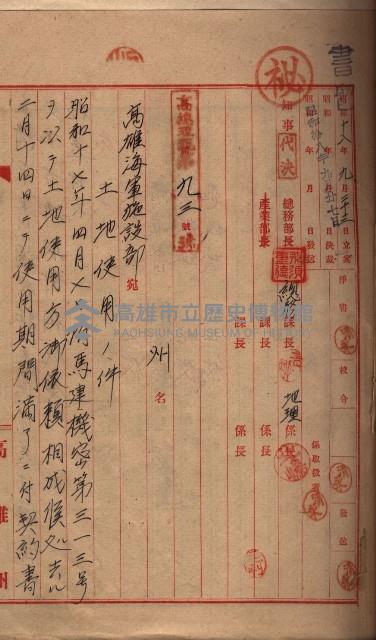 昭和十八年九月 日立案
昭和 年 月 日決裁
昭和 年 月 日發送
淨書
校合
發送
知事代決
總務部長
產業部長
總務課長
課長
課長
地理係長
係長
係長
係取扱者
秘
高總地秘第九三號
州名
高雄海軍施設部宛
土地使用ノ件
昭和十七年四月七日馬建機密第三一三号
ヲ以テ土地使用方御依頼相成候処去ル
二月十四日ニテ使用期間満了ニ付契約書
高雄州
高雄市立歷史博物館
KAOHSIUNG MUSEUM OF HISTORY